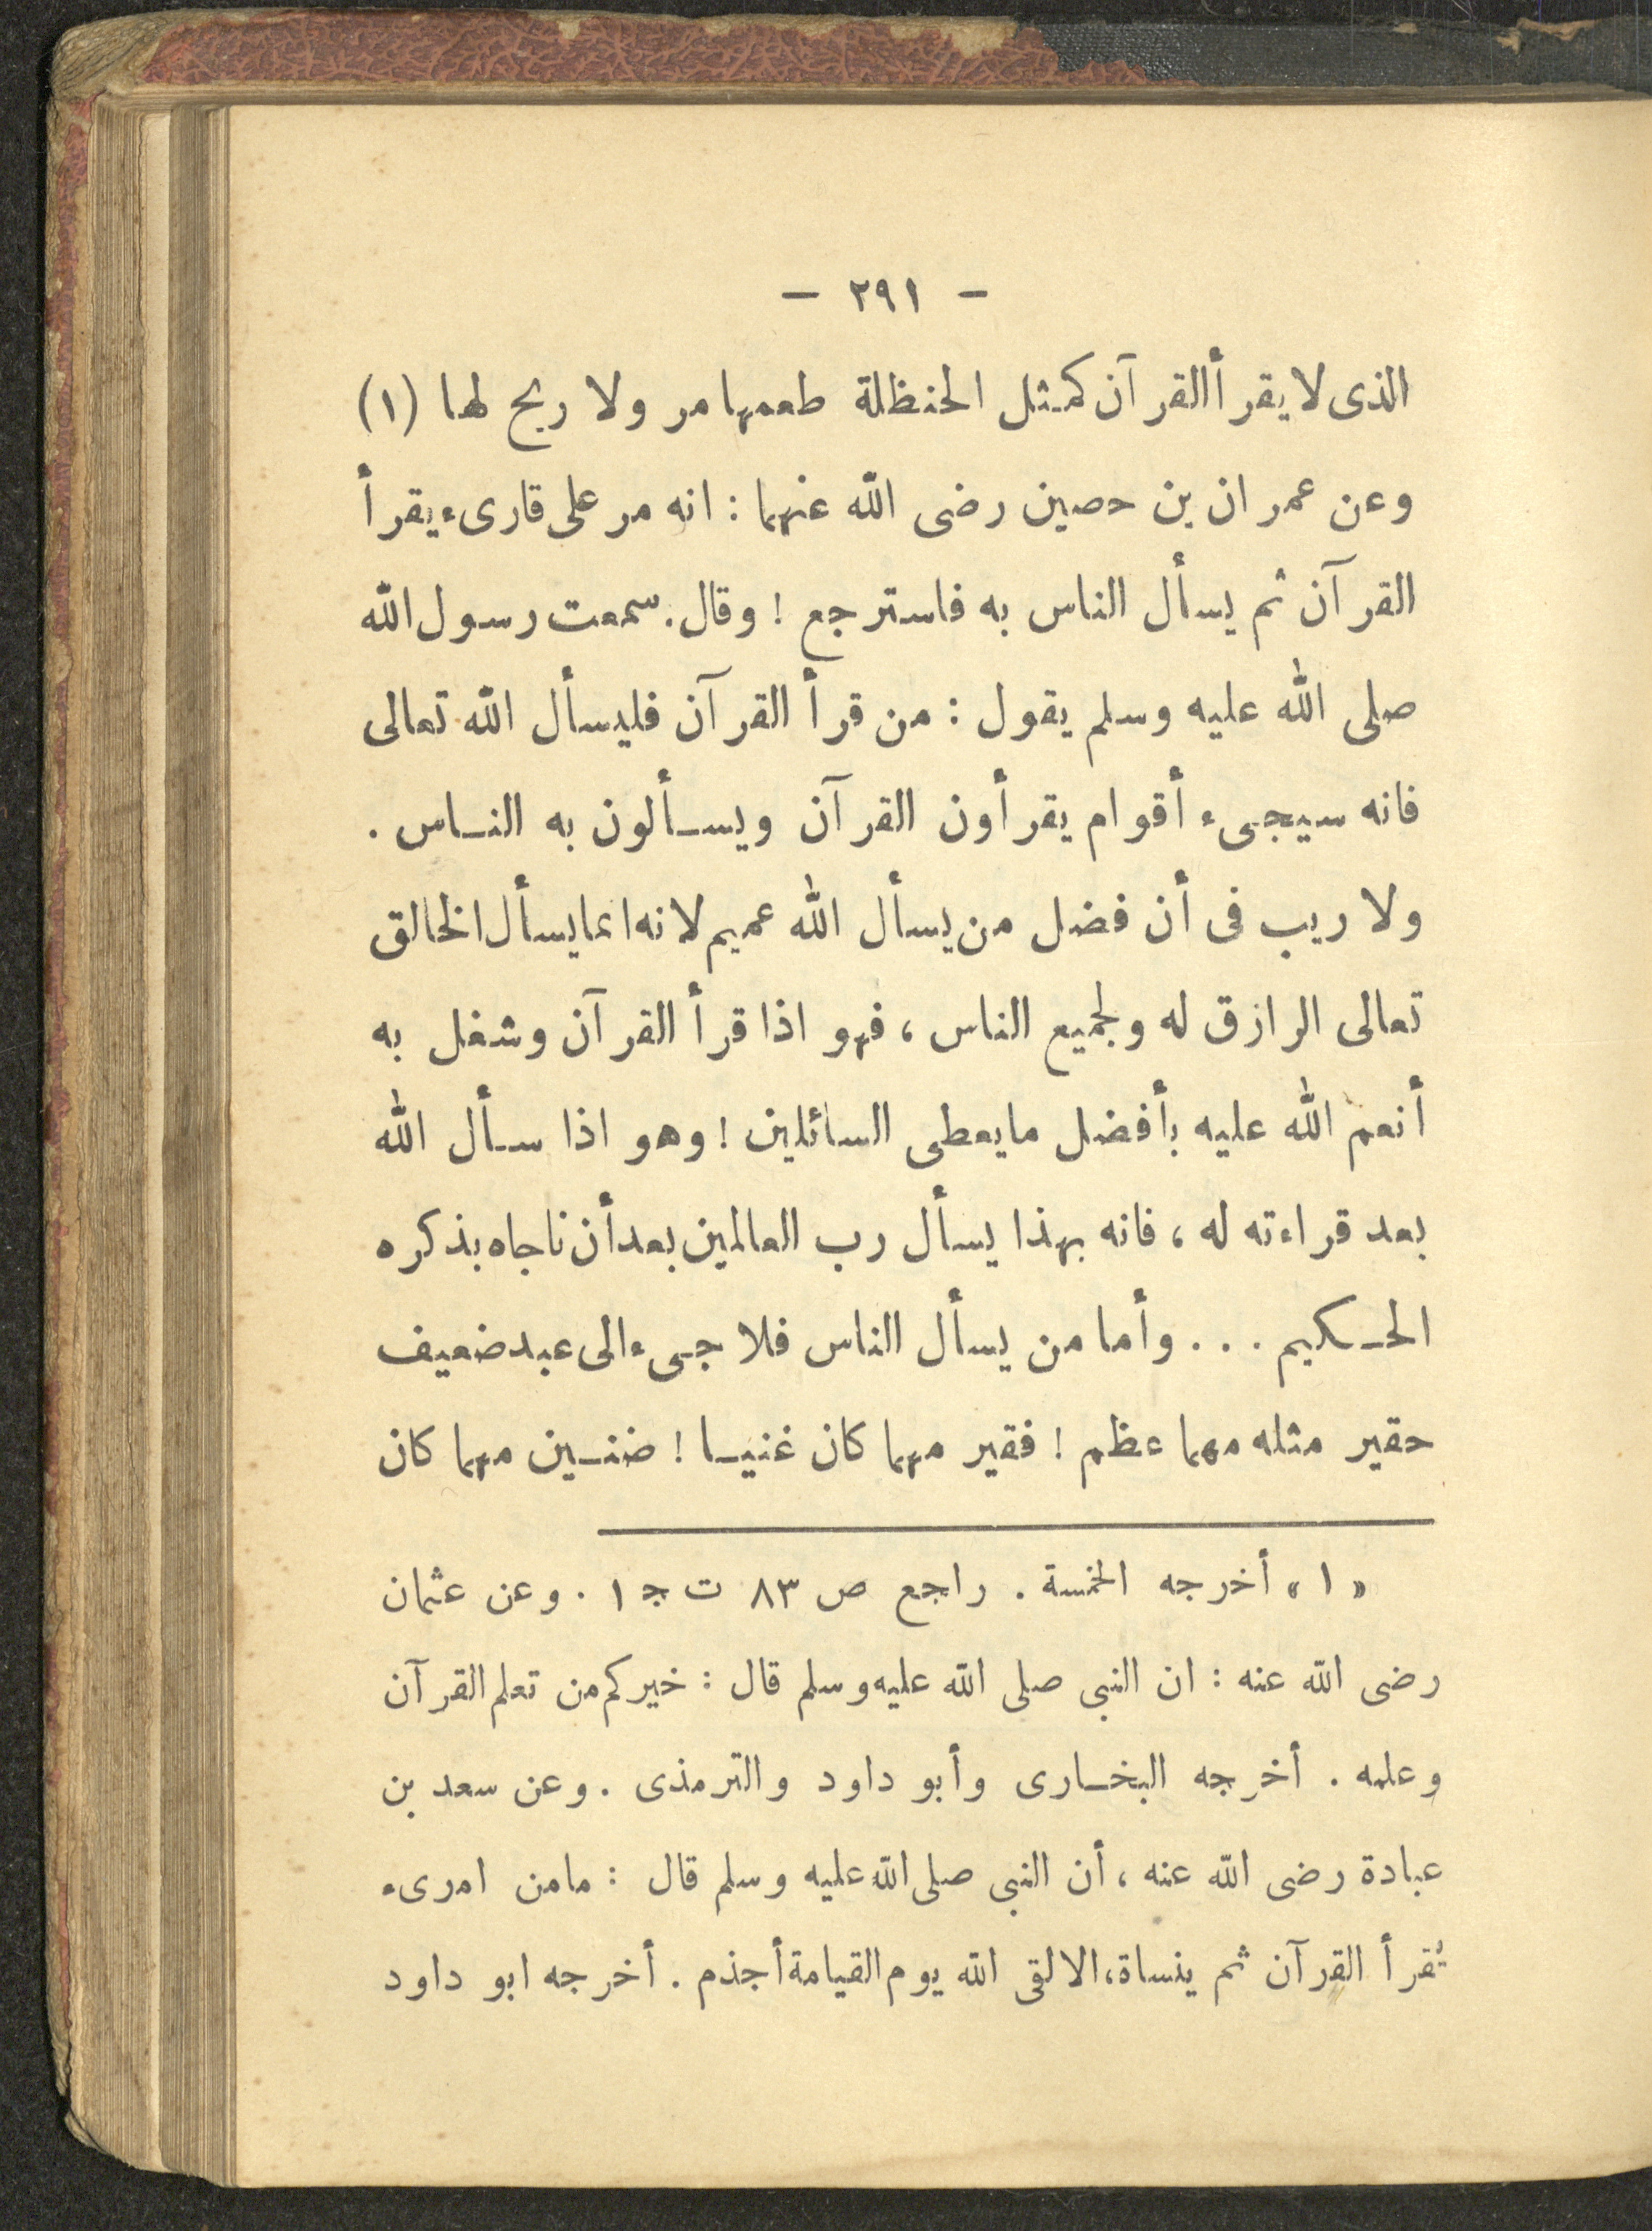 - ٢٩١ -
الذى لا يقرأ القرآن كمثل الحنظلة طعمها مر ولا ريح لها (١)
وعن عمران بن حصين رضى الله عنهما : انه مر على قارىء يقرأ
القرآن ثم يسأل الناس به فاسترجع ! وقال. سمعت رسول الله
صلى الله عليه وسلم يقول : من قرأ القرآن فليسأل الله تعالى
فانه سيجىء أقوام يقرأون القرآن ويسألون به الناس .
ولا ريب فى أن فضل من يسأل الله عميم لانه انما يسأل الخالق
تعالى الرازق له ولجميع الناس ، فهو اذا قرأ القرآن وشغل به
أنعم الله عليه بأفضل ما يعطى السائلين ! وهو اذا سأل الله
بعد قراءته له ، فانه بهذا يسأل رب العالمين بعد أن ناجاه بذكره
الحكيم . . . وأما من يسأل الناس فلا جىء الى عبد ضعيف
حقير مثله مهما عظم ! فقير مهما كان غنيا ! ضنين مهما كان
« ١ » أخرجه الخمسة . راجع ص ٨٣ ت ج ١ . وعن عثمان
رضى الله عنه : ان النبى صلى الله عليه وسلم قال : خيركم من تعلم القرآن
وعلمه . أخرجه البخارى وأبو داود والترمذى . وعن سعد بن
عبادة رضى الله عنه ، أن النبى صلى الله عليه وسلم قال : مامن امرىء
يقرأ القرآن ثم ينساة، الا لقى الله يوم القيامة أجذم . أخرجه ابو داود